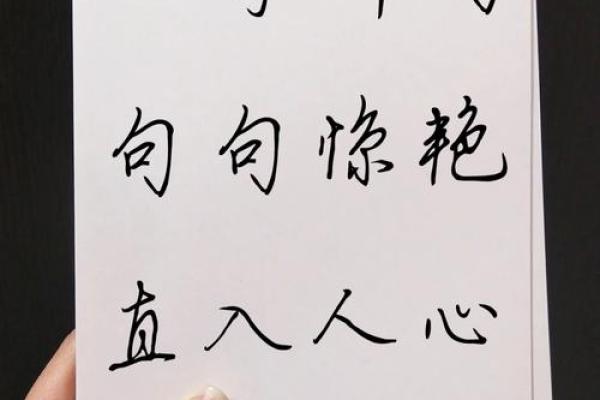 句句惊艳
直入人心